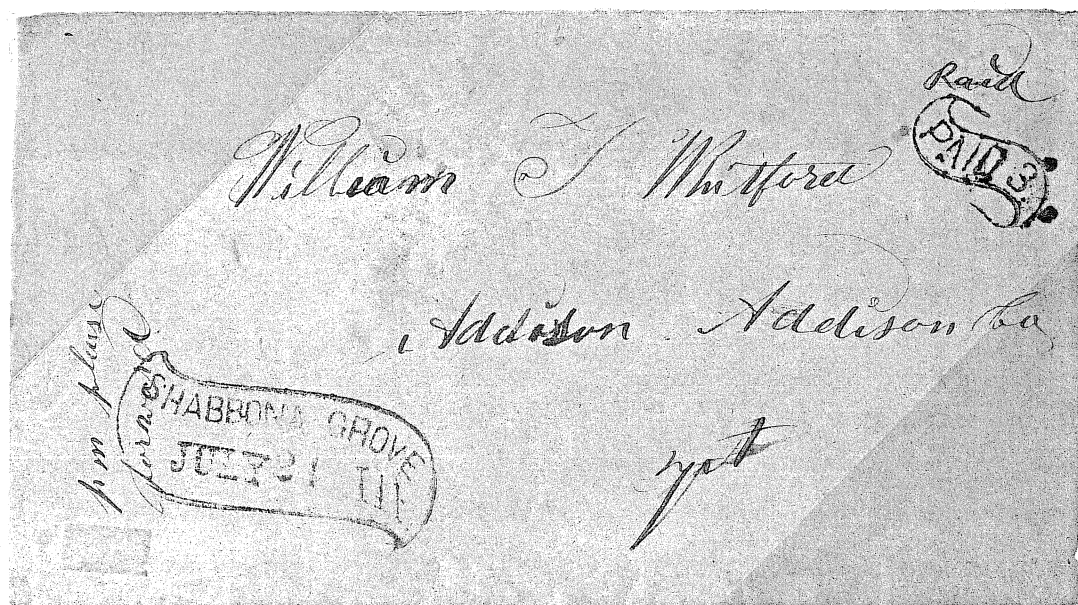 Paid
PAID 3.
William S Whitford
Addison Addison Co
pm please
forward
SHABBONA GROVE
JULY 31 ILL